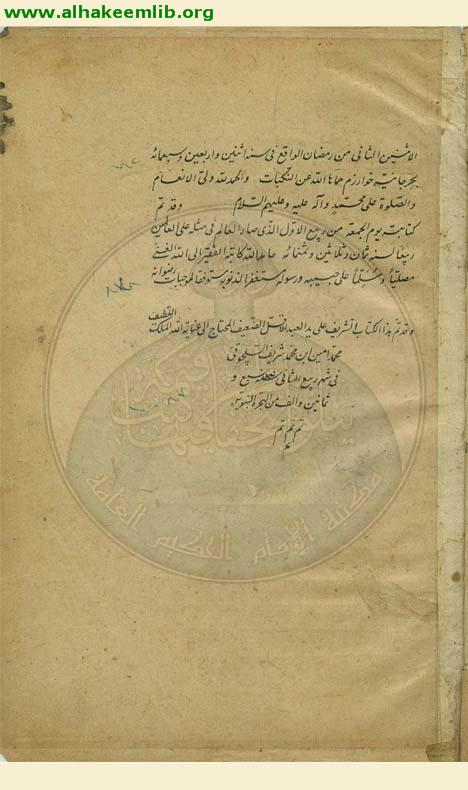 www.alhakeemlib.org
الاثنين الثانى من رمضان الواقع فى سنه اثنين واربعين وسبعمائه
بجرجانية خوارزم حماها الله عن النكبات والحمد لله ولى الانعام
والصلوة على محمد وآله عليه وعليهم السلام وقد تم
كتابته يوم الجمعة من ربيع الاول الذى صار العالم فى مثله على العالمين
ربيعا لسنه ثمان وثلاثين وثمنمائه حامدا لله كاتبه الفقير الى الله الغنى
مصليا ومسلما على حبيبه ورسوله مستغفرا لذنوبه مستوفقا لموجبات رضوانه
وقد تم هذا الكتاب الشريف على يد العبد الاقل الضعيف المحتاج الى عناية الله الملك اللطيف
محمد امين ابن محمد شريف
فى شهر ربيع الثانى سنه سبع و
ثمانين والف من الهجرة النبويه
تم تم تم
تم
مكتبة الإمام الحكيم العامة